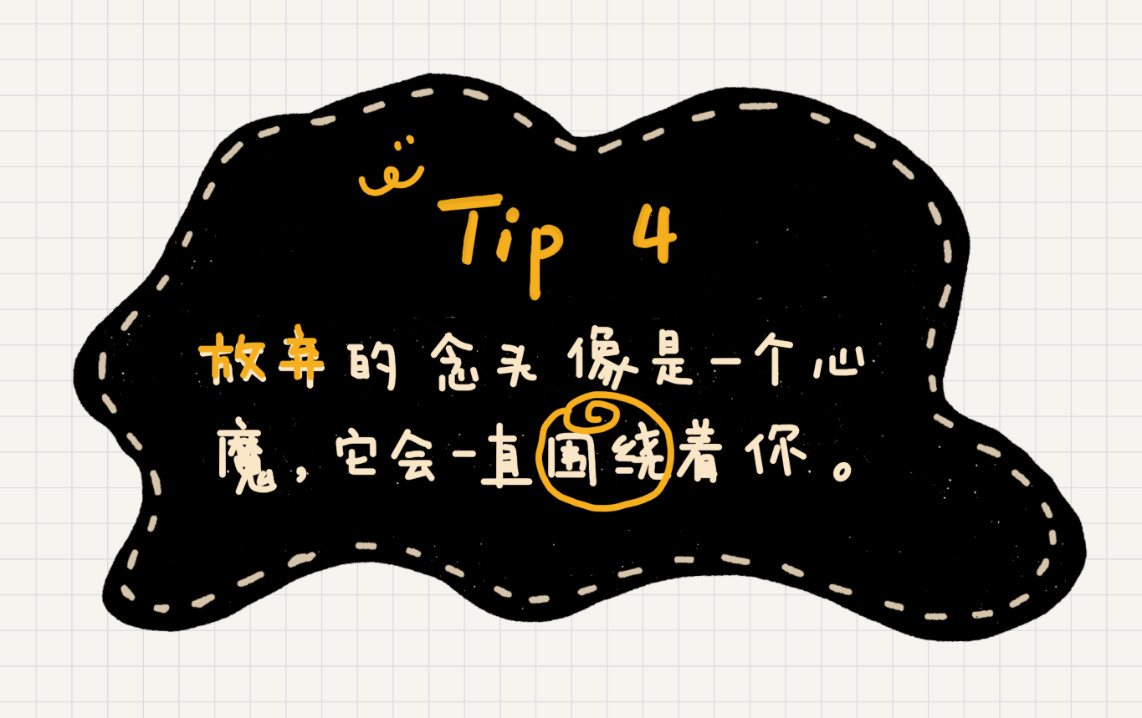 Tip 4
放弃的念头像是一个心
魔，它会一直围绕着你。